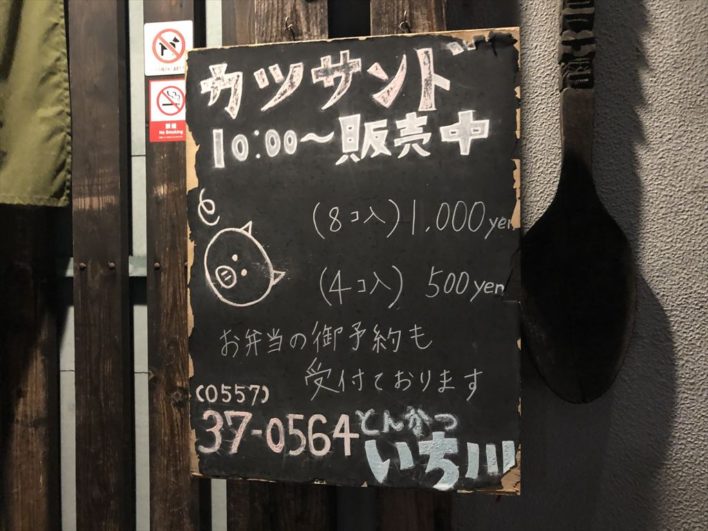 カツサンド
10:00～販売中
(8コ入) 1,000yen
(4コ入) 500yen
お弁当の御予約も
受付ております
(0557)
37-0564
とんかつ
いち川
禁煙
No Smoking